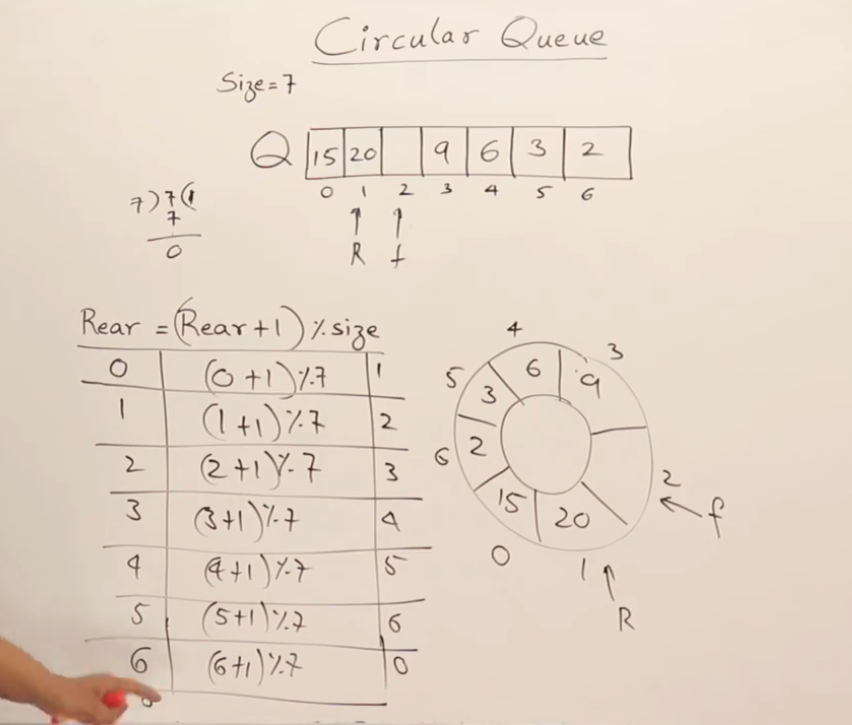 Circular Queue
Size=7
Q 15 20 9 6 3 2
0 1 2 3 4 5 6
7)7(1
7
0
R f
Rear = (Rear+1) % size
0 (0+1)%7 1
1 (1+1)%7 2
2 (2+1)%7 3
3 (3+1)%7 4
4 (4+1)%7 5
5 (5+1)%7 6
6 (6+1)%7 0
4 3
5 3 6 9
6 2
2
f
15 20
0 1
R